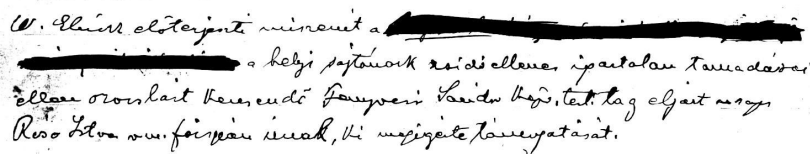 W. Elnök előterjeszti miszerint a
a helyi sajtónak zsidóellenes ipartalan támadásai
ellen orvoslást keresendő Fenyvesi Sándor képv. test. tag eljárt
Rósa István v. m. főispán úrnak, ki megigérte támogatását.